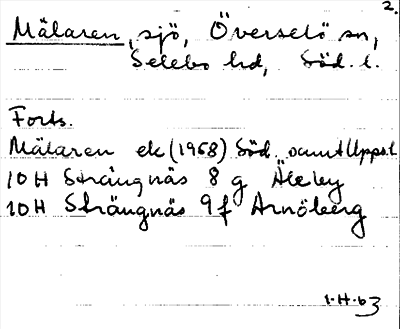 2.
Mälaren, sjö, Överselö sn,
Selebo hd, Söd. l.
Forts.
Mälaren ek (1968) Söd. samt Upps. l
10H Strängnäs 8 g Åleby
10H Strängnäs 9 f Arnöberg